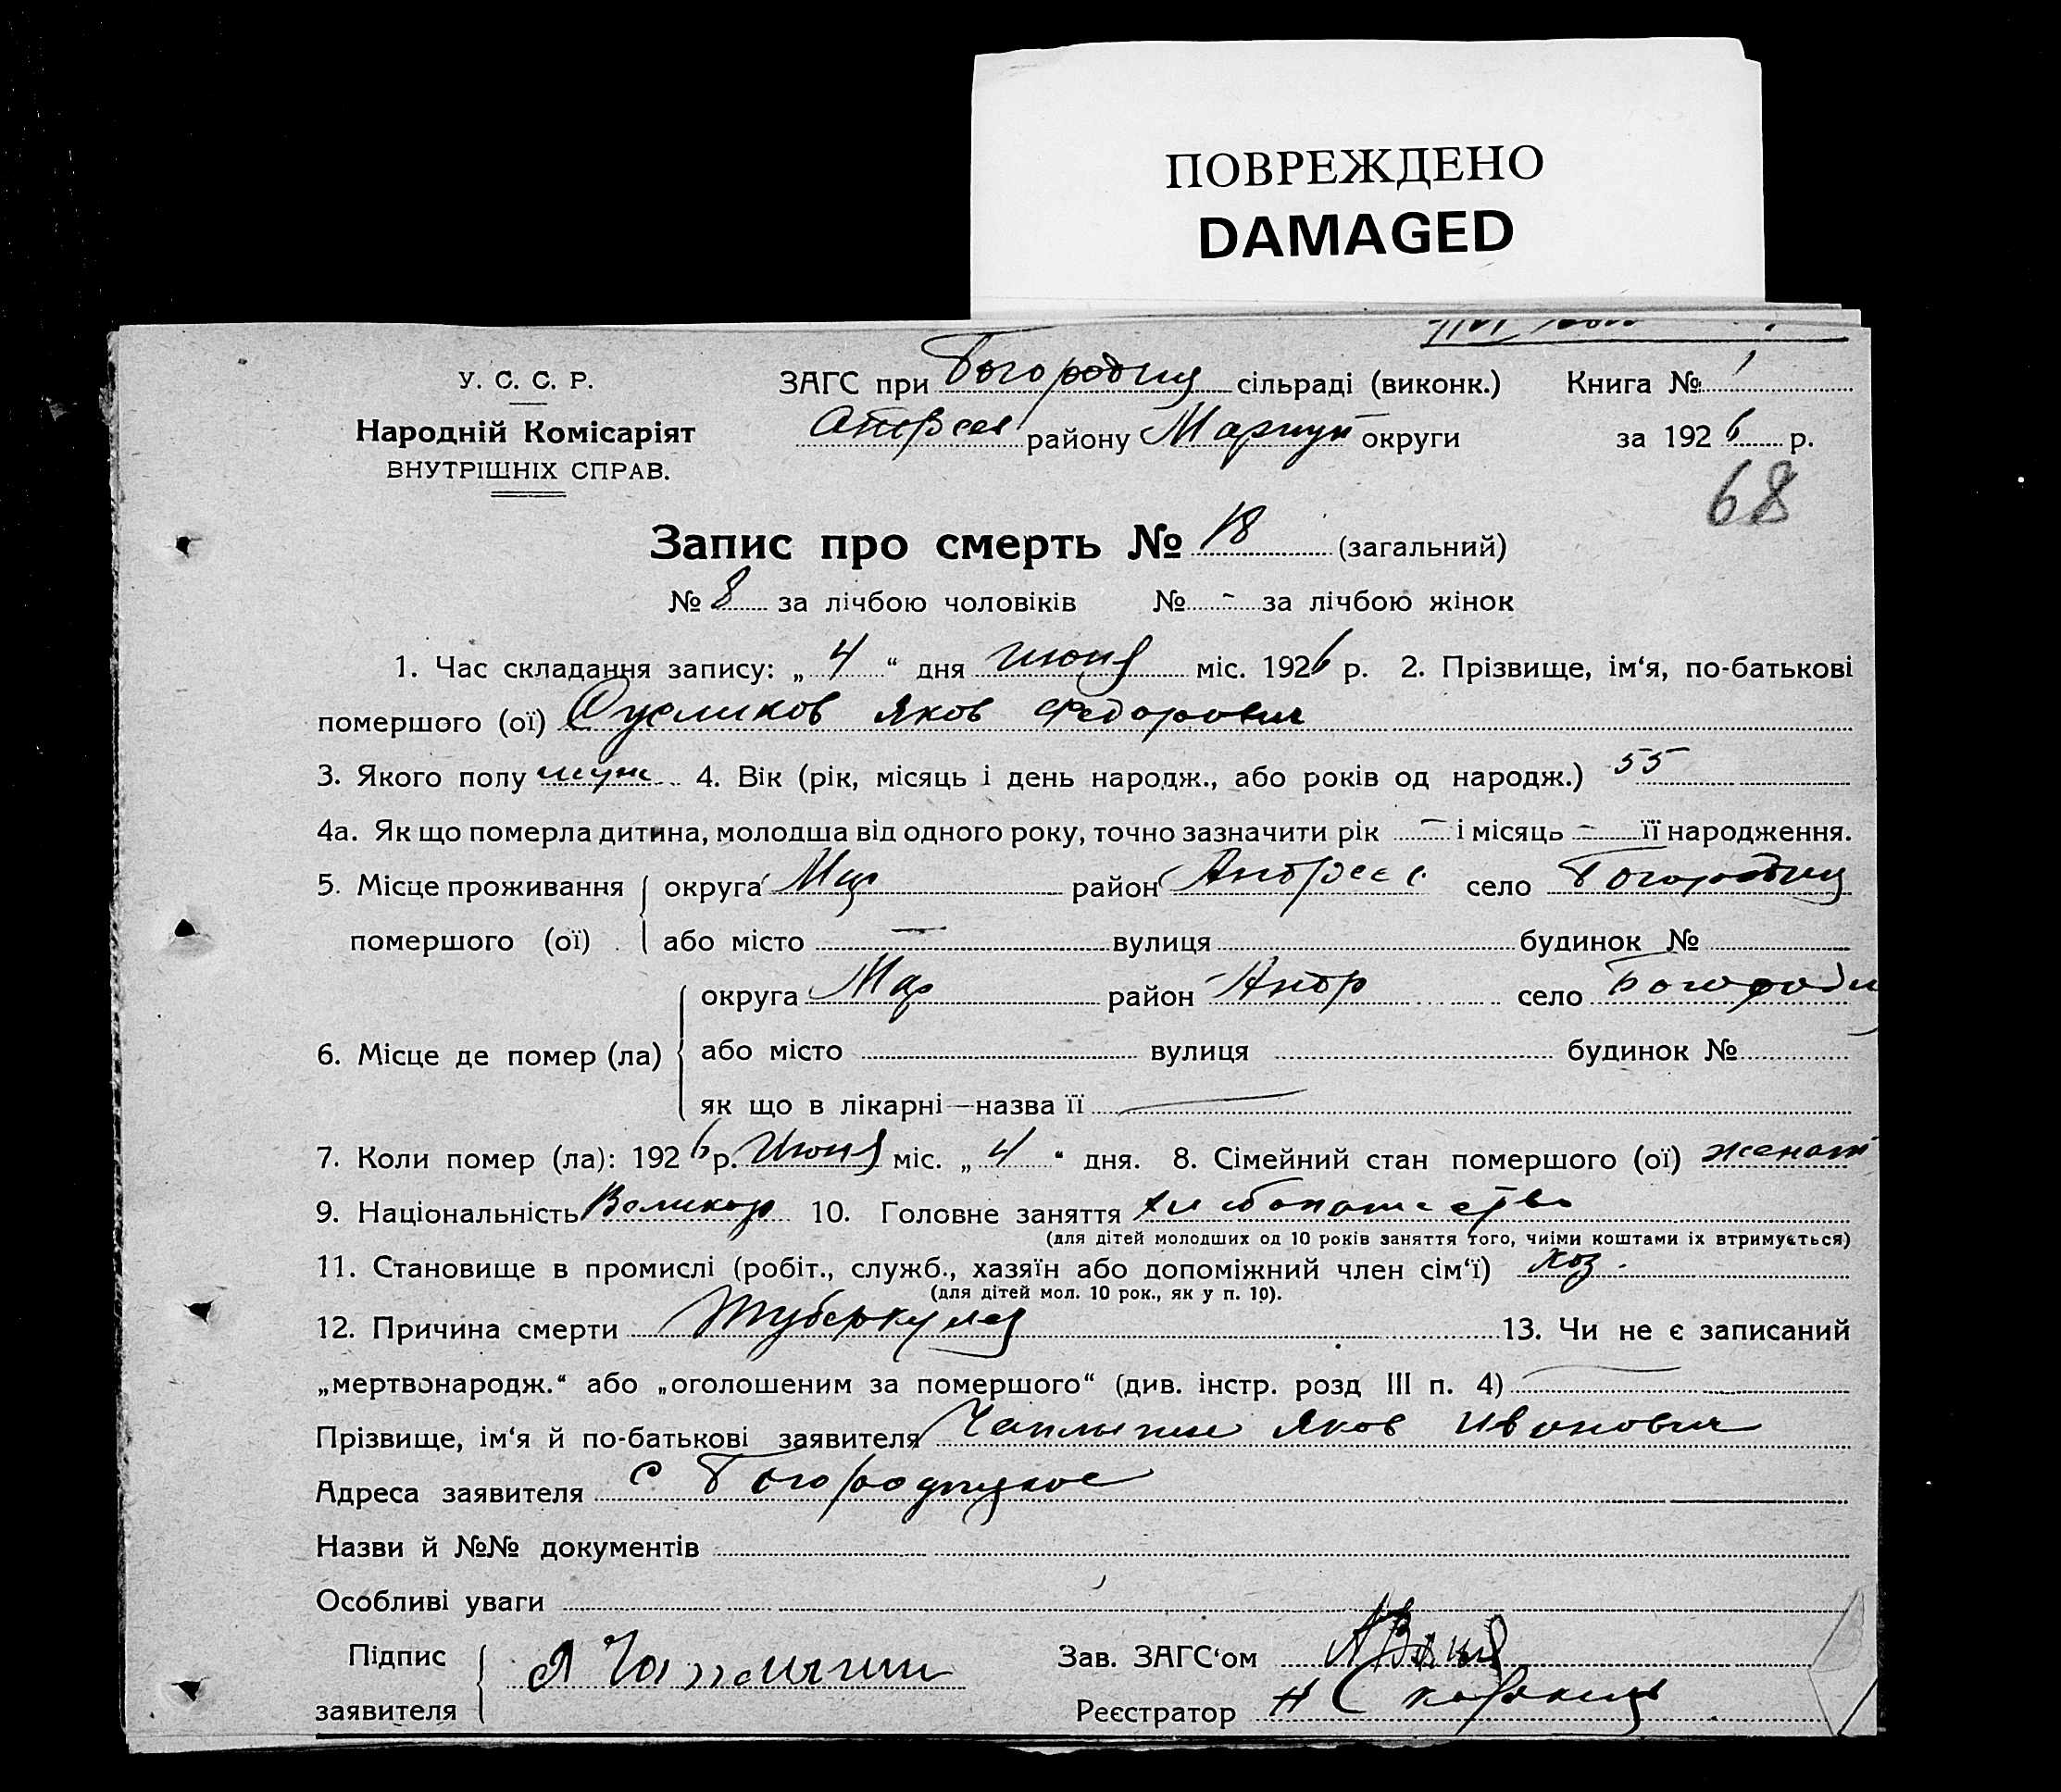 ПОВРЕЖДЕНО
DAMAGED
У. С. С. Р. ЗАГС при Богородиц сільраді (виконк.) Книга № 1
Народній Комісаріят Андреев району Мариуп округи за 1926 р.
ВНУТРІШНІХ СПРАВ.
68
Запис про смерть № 18 (загальний)
№ 8 за лічбою чоловіків № - за лічбою жінок
1. Час складання запису: „ 4 “ дня июня міс. 1926 р. 2. Прізвище, ім‘я, по-батькові
помершого (ої) Сусликов Яков Федорович
3. Якого полу муж 4. Вік (рік, місяць і день народж., або років од народж.) 55
4а. Як що померла дитина, молодша від одного року, точно зазначити рік – і місяць – її народження.
5. Місце проживання округа Мар район Андреев село Богородиц
помершого (ої) або місто — вулиця будинок №
округа Мар район Андр село Богородиц
6. Місце де помер (ла) або місто вулиця будинок №
як що в лікарні—назва її —
7. Коли помер (ла): 1926 р. Июня міс. „ 4 “ дня. 8. Сімейний стан помершого (ої) женат
9. Національність Великор 10. Головне заняття хлебопашество
(для дітей молодших од 10 років заняття того, чиїми коштами їх втримується)
11. Становище в промислі (робіт., служб., хазяїн або допоміжний член сім‘ї) хоз.
(для дітей мол. 10 рок., як у п. 10).
12. Причина смерти Туберкулез 13. Чи не є записаний
„мертвонародж.“ або „оголошеним за помершого“ (див. інстр. розд III п. 4) —
Прізвище, ім‘я й по-батькові заявителя Чаплыгин Яков Иванович
Адреса заявителя с Богородицкое
Назви й №№ документів
Особливі уваги
Підпис Я Чаплыгин Зав. ЗАГС‘ом
заявителя Реєстратор Н